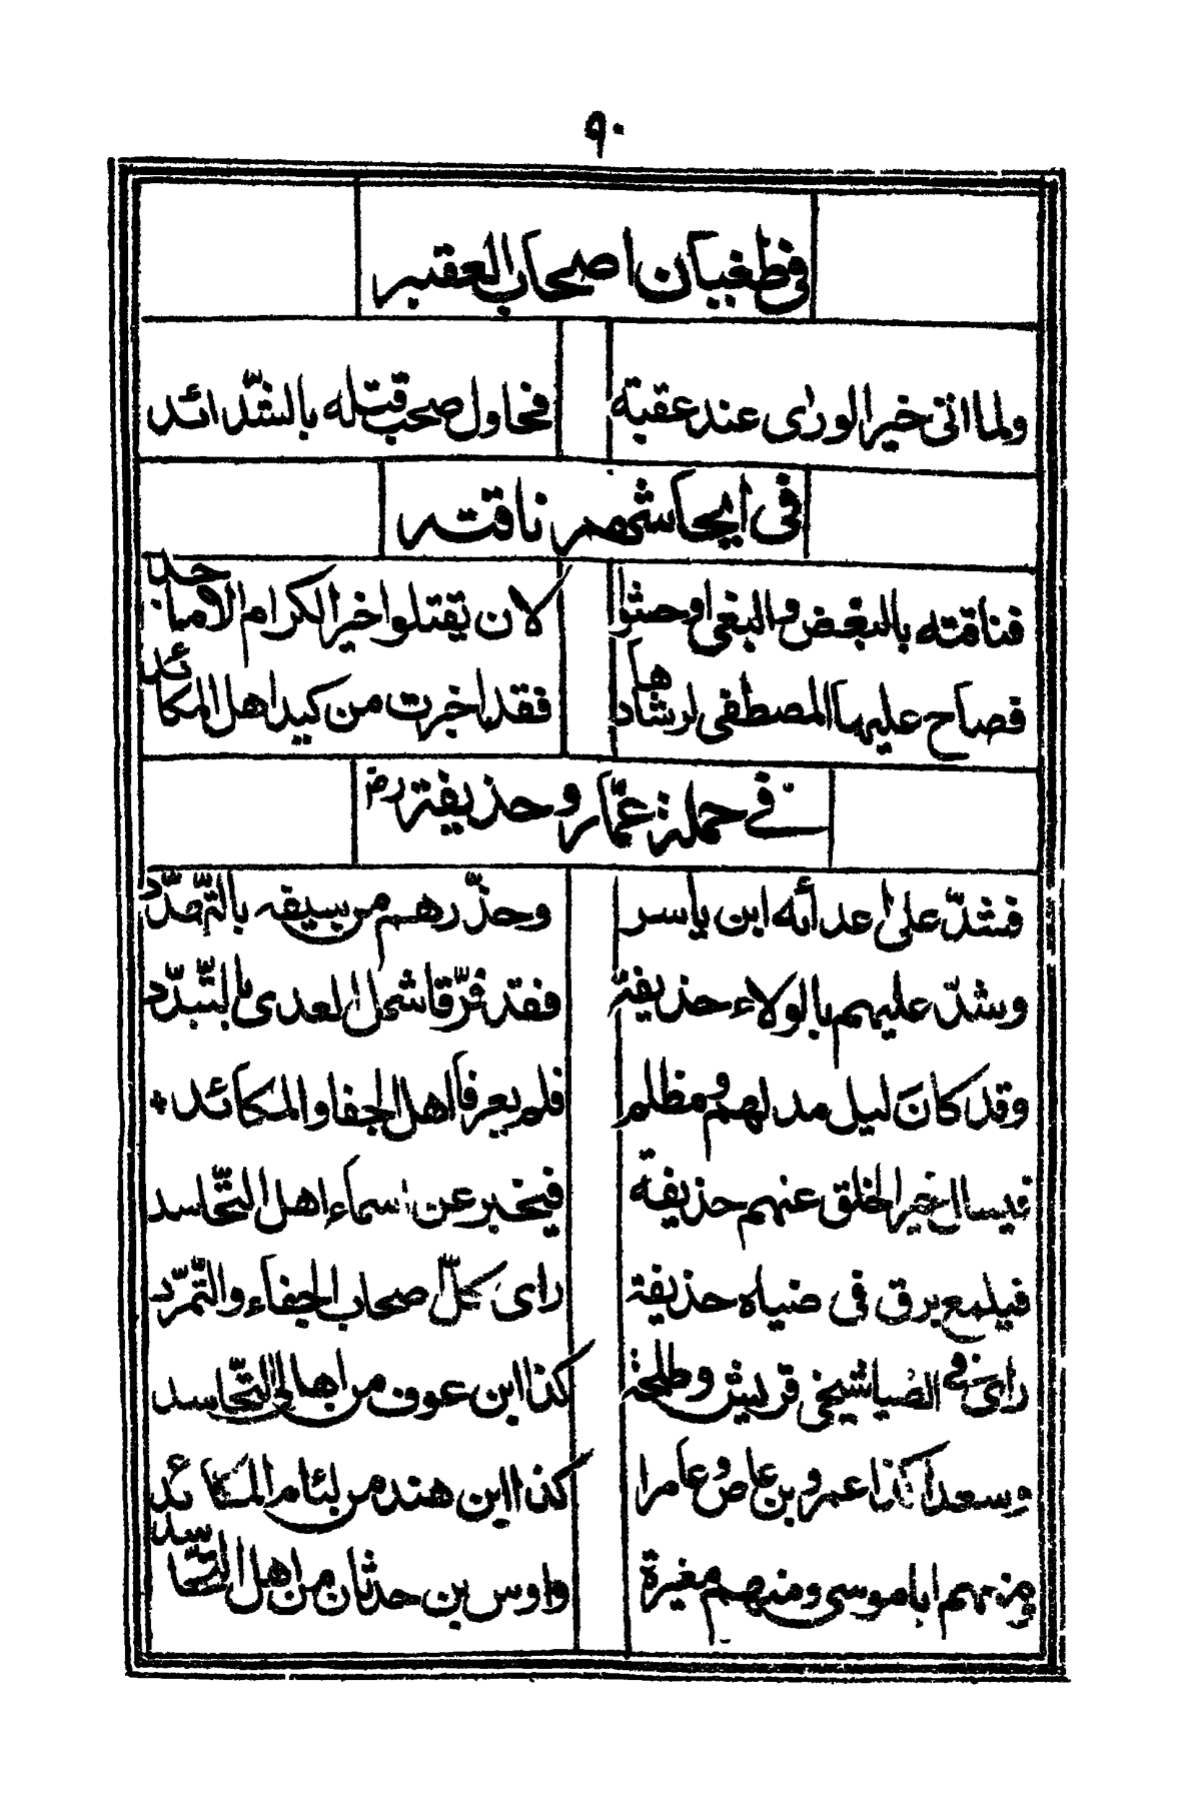 ٩٠
فی طغیان اصحاب العقبہ
ولما اتی خیر الوریٰ عند عقبة فحاول صحب قتله بالشّدائد
فی ایحاشهم ناقته
فناقته بالبغض والبغی اوحشوا لان یقتلوا خیر الکرام الاماجد
فصاح علیها المصطفی لرشادها فقد اخبرت من کید اهل المکائد
فی حملة عمّار و حذیفة رض
فشدّ علیٰ اعدائه ابن یاسر وحذّرهم من سیفه بالتّهدّد
وشدّ علیهم بالولاء حذیفة ففقد فرّقا شمل العدی بالتّبدّد
وقد کانَ لیل مدلهم و مظلم فلم یعرفا اهل الجفا والمکائد
فیسال خیر الخلق عنهم حذیفة فیخبر عن اسماء اهل التّحاسد
فیلمع برق فی ضیاه حذیفة رای کلّ اصحاب الجفاء والتّمرّد
رایٰ فی الضیا شیخی قریش وطلحة کذا ابن عوف من اهالی التّحاسد
وسعدا کذا عمرو بن عاص و عامرا کذا ابن هند من لئام المکائد
ومنهم ابا موسی ومنهم مغیرة واوس بن حدثان من اهل التحاسد